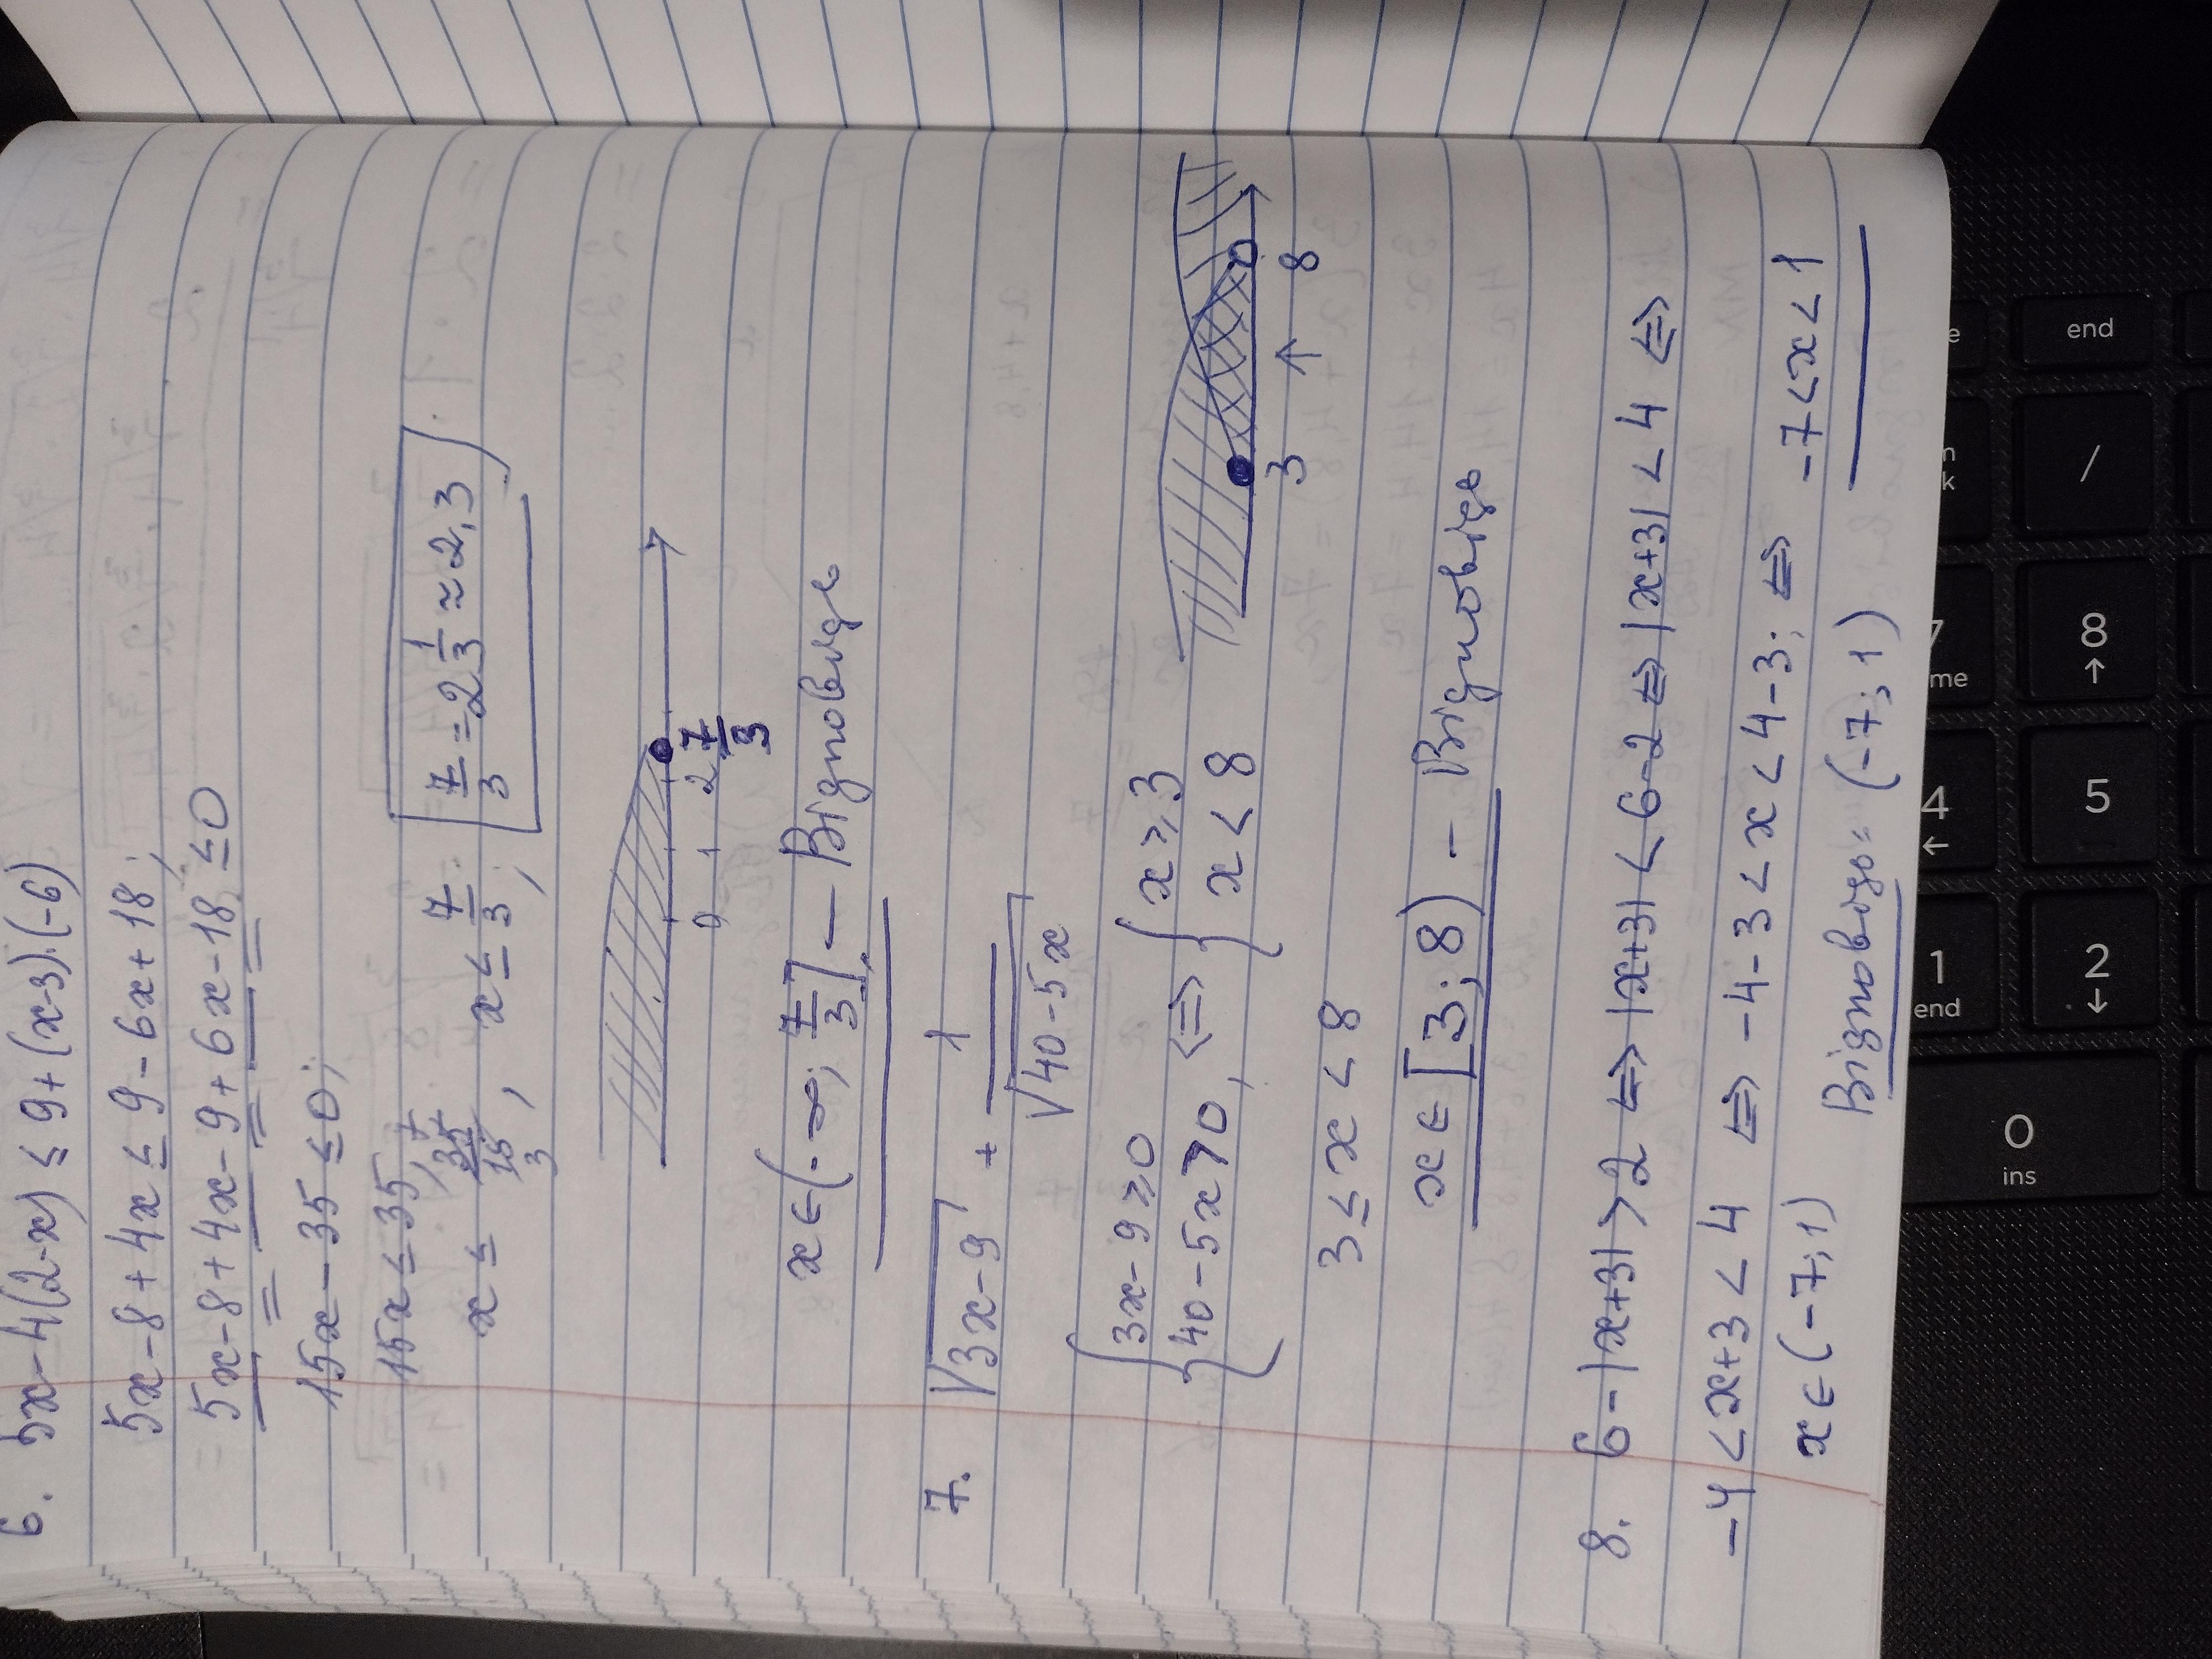 6. 5x-4(2-x) ≤ 9+(x-3)·(-6)
5x-8+4x ≤ 9-6x+18;
5x-8+4x-9+6x-18 ≤ 0
15x-35 ≤ 0;
15x ≤ 35,
x ≤ 35/15 7/3, x ≤ 7/3; 7/3 = 2 1/3 ≈ 2,3
0 1 2 7/3
x ∈ (-∞; 7/3] - Відповідь
7. √3x-9 + 1/√40-5x
{3x-9 ≥ 0 {x ≥ 3
{40-5x > 0, <=> {x < 8
3 → 8
3 ≤ x < 8
x ∈ [3; 8) - Відповідь
8. 6-|x+3| > 2 <=> |x+3| < 6-2 <=> |x+3| < 4 <=>
-4 < x+3 < 4 <=> -4-3 < x < 4-3; <=> -7 < x < 1
x ∈ (-7; 1) Відповідь: (-7; 1)
end
/
7
8
↑
4
←
5
1
end
2
↓
0
ins